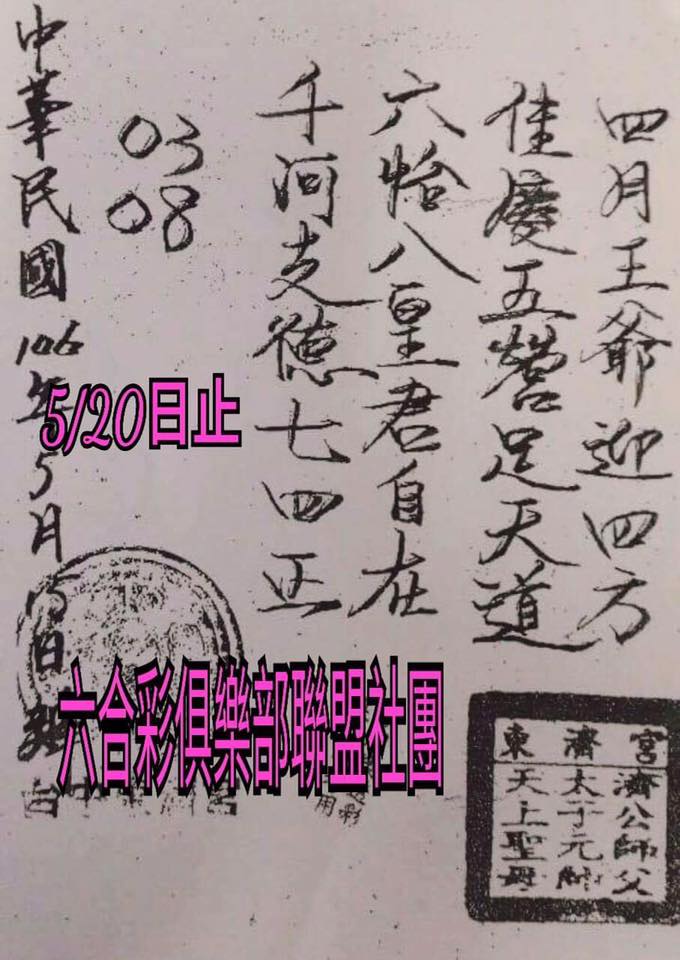 四月王爺迎四方
佳慶五營足天道
六怡八皇君自在
千河支德七四正
03
08
中華民國106年5月15日
5/20日止
六合彩俱樂部聯盟社團
東濟宮
濟公師父
太子元帥
天上聖母